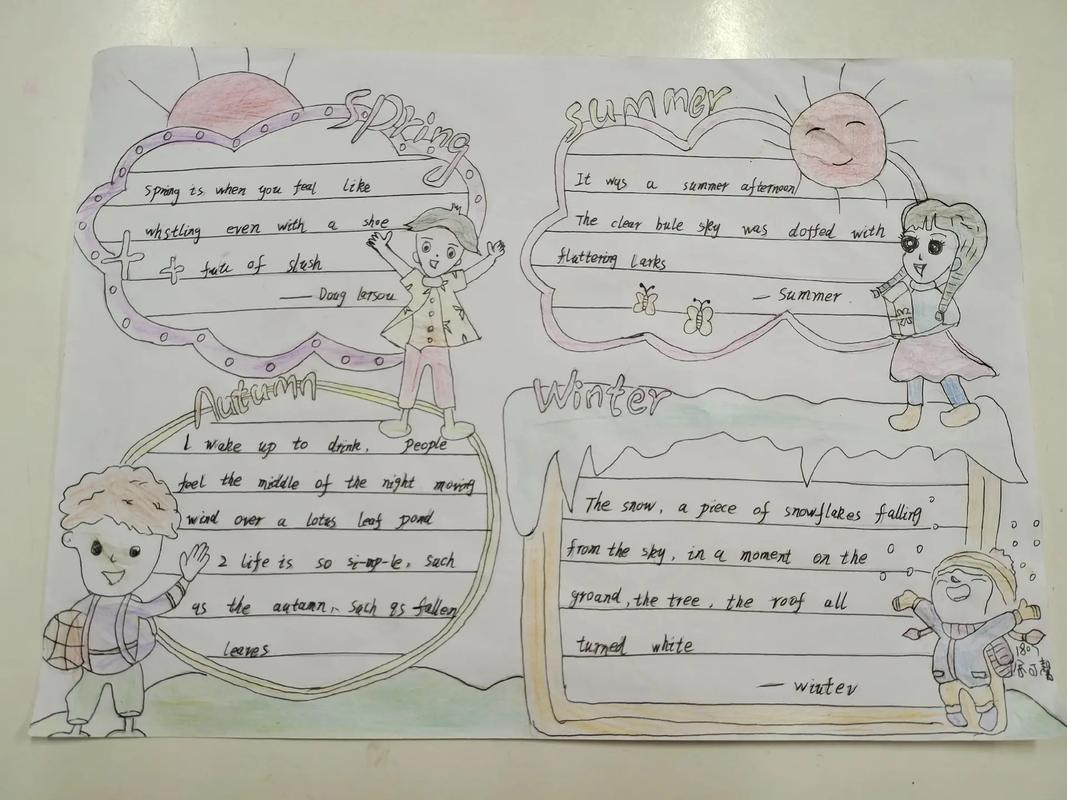 Spring
Spring is when you feel like
whstling even with a shoe
full of slush
— Doug Larson
summer
It was a summer afternoon
The clear bule sky was dotted with
fluttering larks
— Summer
Autumn
1 wake up to drink, people
feel the middle of the night moving
wind over a lotus leaf pond
2 life is so si-mp-le, such
as the autumn, such as fallen
leaves
Winter
The snow, a piece of snowflakes falling
from the sky, in a moment on the
ground, the tree, the roof all
turned white
— winter